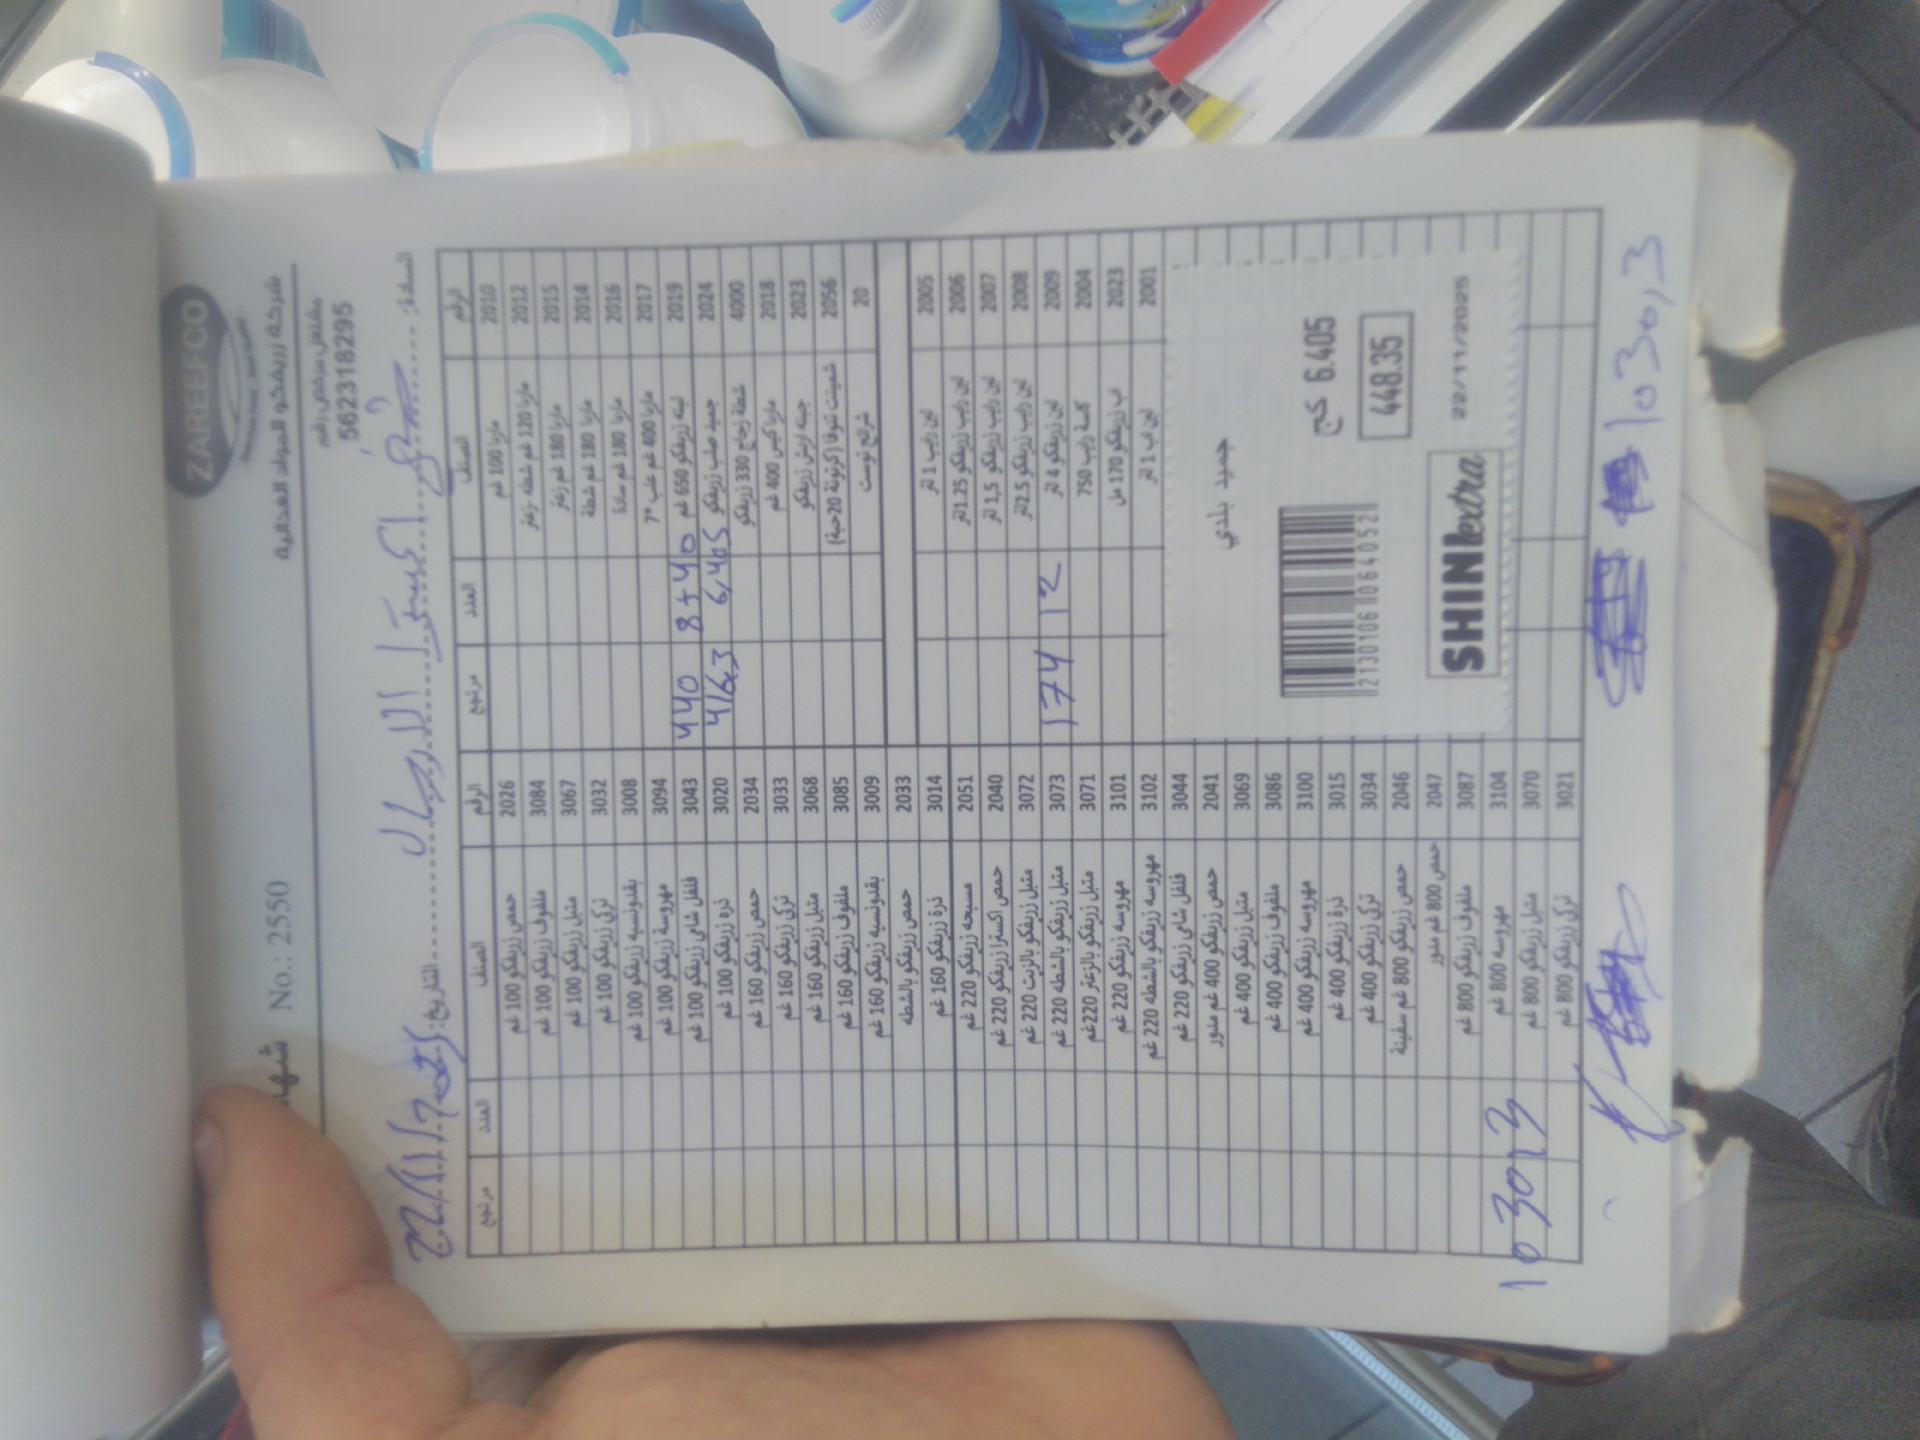 ZAREEFCO
شركة زريفكو للمواد الغذائية
مشتغل مرخص رقم
562318295
No.: 2550
السادة: شيني اكسترا الارسال التاريخ: 22/11/2025
الرقم الصنف العدد مرتجع الرقم الصنف العدد مرتجع
2010 ماربا 100 غم
2012 ماربا 120 غم شطة زعتر
2015 ماربا 180 غم زعتر
2014 ماربا 180 غم شطة
2016 ماربا 180 غم سادة
2017 ماربا 400 غم علب *7
2019 لبنه زريفكو 650 غم 8+40 440
2024 جميد صلب زريفكو 6,405 416,3
4000 شطة زجاج 330 زريفكو
2018 ماربا كيس 400 غم
2023 جبنه ايرش زريفكو
2056 شمينت شوفا (كرتونة 20حبة)
20 شرائح توست
2005 لبن رايب 1 لتر
2006 لبن رايب زريفكو 1.25لتر
2007 لبن رايب زريفكو 1,5 لتر
2008 لبن رايب زريفكو 2.5لتر
2009 لبن زريفكو 4 لتر 12 174
2004 كاسة رايب 750
2023 اب زريفكو 170 مل
2001 لبن اب 1 لتر
جميد بلدي
6.405 كج
448.35
2130106064052
SHINI extra
22/11/2025
2026 حمص زريفكو 100 غم
3084 ملفوف زريفكو 100 غم
3067 متبل زريفكو 100 غم
3032 تركي زريفكو 100 غم
3008 بقدونسيه زريفكو 100 غم
3094 مهروسة زريفكو 100 غم
3043 فلفل شاي زريفكو 100 غم
3020 ذره زريفكو 100 غم
2034 حمص زريفكو 160 غم
3033 تركي زريفكو 160 غم
3068 متبل زريفكو 160 غم
3085 ملفوف زريفكو 160 غم
3009 بقدونسيه زريفكو 160 غم
2033 حمص زريفكو بالشطه
3014 ذرة زريفكو 160 غم
2051 مسبحه زريفكو 220 غم
2040 حمص اكسترا زريفكو 220 غم
3072 متبل زريفكو بالزيت 220 غم
3073 متبل زريفكو بالشطه 220 غم
3071 متبل زريفكو بالزعتر 220غم
3101 مهروسه زريفكو 220 غم
3102 مهروسه زريفكو بالشطه 220 غم
3044 فلفل شاي زريفكو 220 غم
2041 حمص زريفكو 400 غم مدور
3069 متبل زريفكو 400 غم
3086 ملفوف زريفكو 400 غم
3100 مهروسه زريفكو 400 غم
3015 ذرة زريفكو 400 غم
3034 تركي زريفكو 400 غم
2046 حمص زريفكو 800 غم سفينة
2047 حمص 800 غم مدور
3087 ملفوف زريفكو 800 غم
3104 مهروسه 800 غم
3070 متبل زريفكو 800 غم
3021 تركي زريفكو 800 غم
1030,3
1030,3